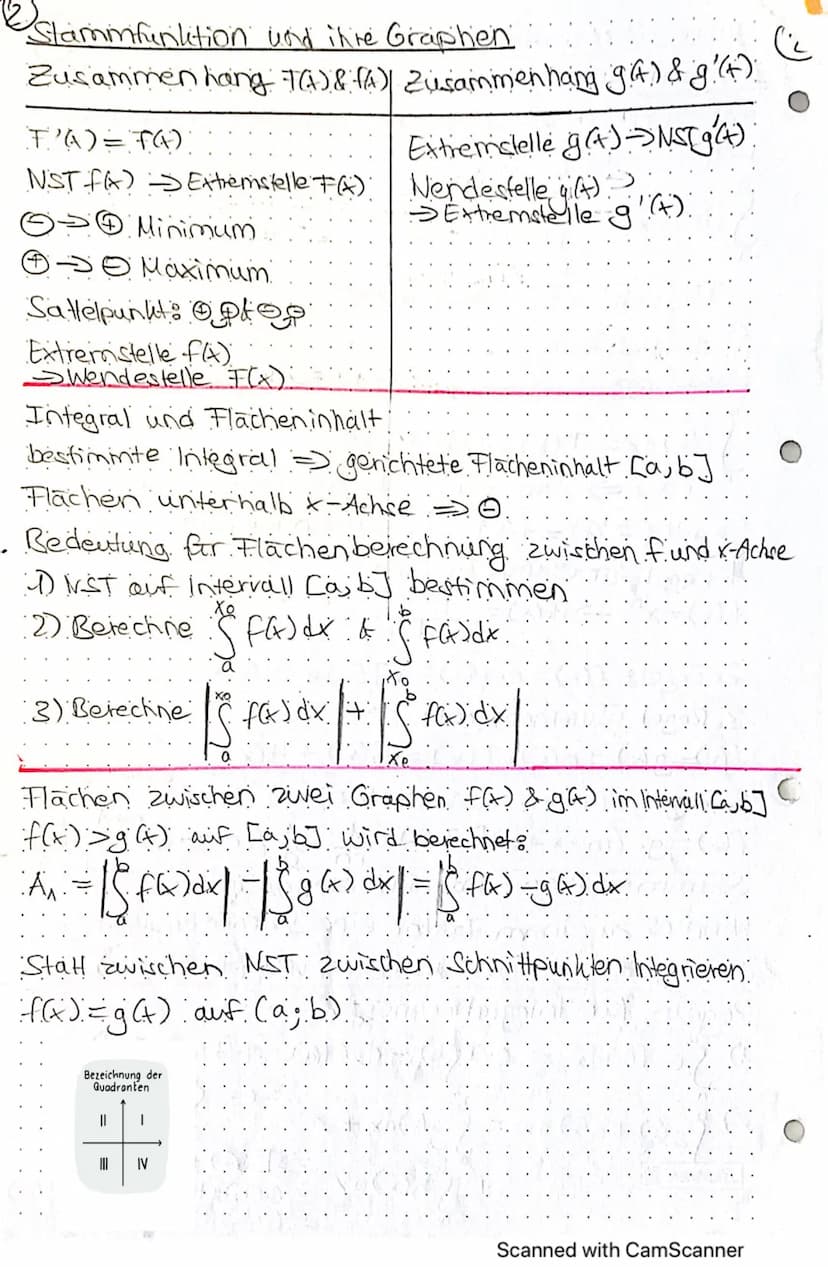 ②
Stammfunktion und ihre Graphen
Zusammenhang F(x) & f(x) | Zusammenhang g(x) & g'(x)
F'(x) = f(x)
NST f(x) → Extremstelle F(x)
⊖ → ⊕ Minimum
⊕ → ⊖ Maximum
Sattelpunkt:
Extremstelle f(x)
→ Wendestelle F(x)
Extremstelle g(x) → NST g'(x)
Wendestelle g(x)
→ Extremstelle g'(x)
Integral und Flächeninhalt
bestimmte Integral ⇒ gerichtete Flächeninhalt [a;b]
Flächen unterhalb x-Achse ⇒ ⊖
Bedeutung für Flächenberechnung zwischen f und x-Achse
1) NST auf Intervall [a;b] bestimmen
2) Berechne ∫ₐ^x₀ f(x) dx & ∫ₓ₀^b f(x) dx
3) Berechne |∫ₐ^x₀ f(x) dx| + |∫ₓ₀^b f(x) dx|
Flächen zwischen zwei Graphen f(x) & g(x) im Intervall [a;b]
f(x) > g(x) auf [a;b] wird berechnet:
A₁ = |∫ₐ^b f(x) dx| - |∫ₐ^b g(x) dx| = |∫ₐ^b f(x) - g(x) dx
Statt zwischen NST zwischen Schnittpunkten Integrieren
f(x) = g(x) auf (a;b)
Bezeichnung der
Quadranten
II I
III IV
Scanned with CamScanner